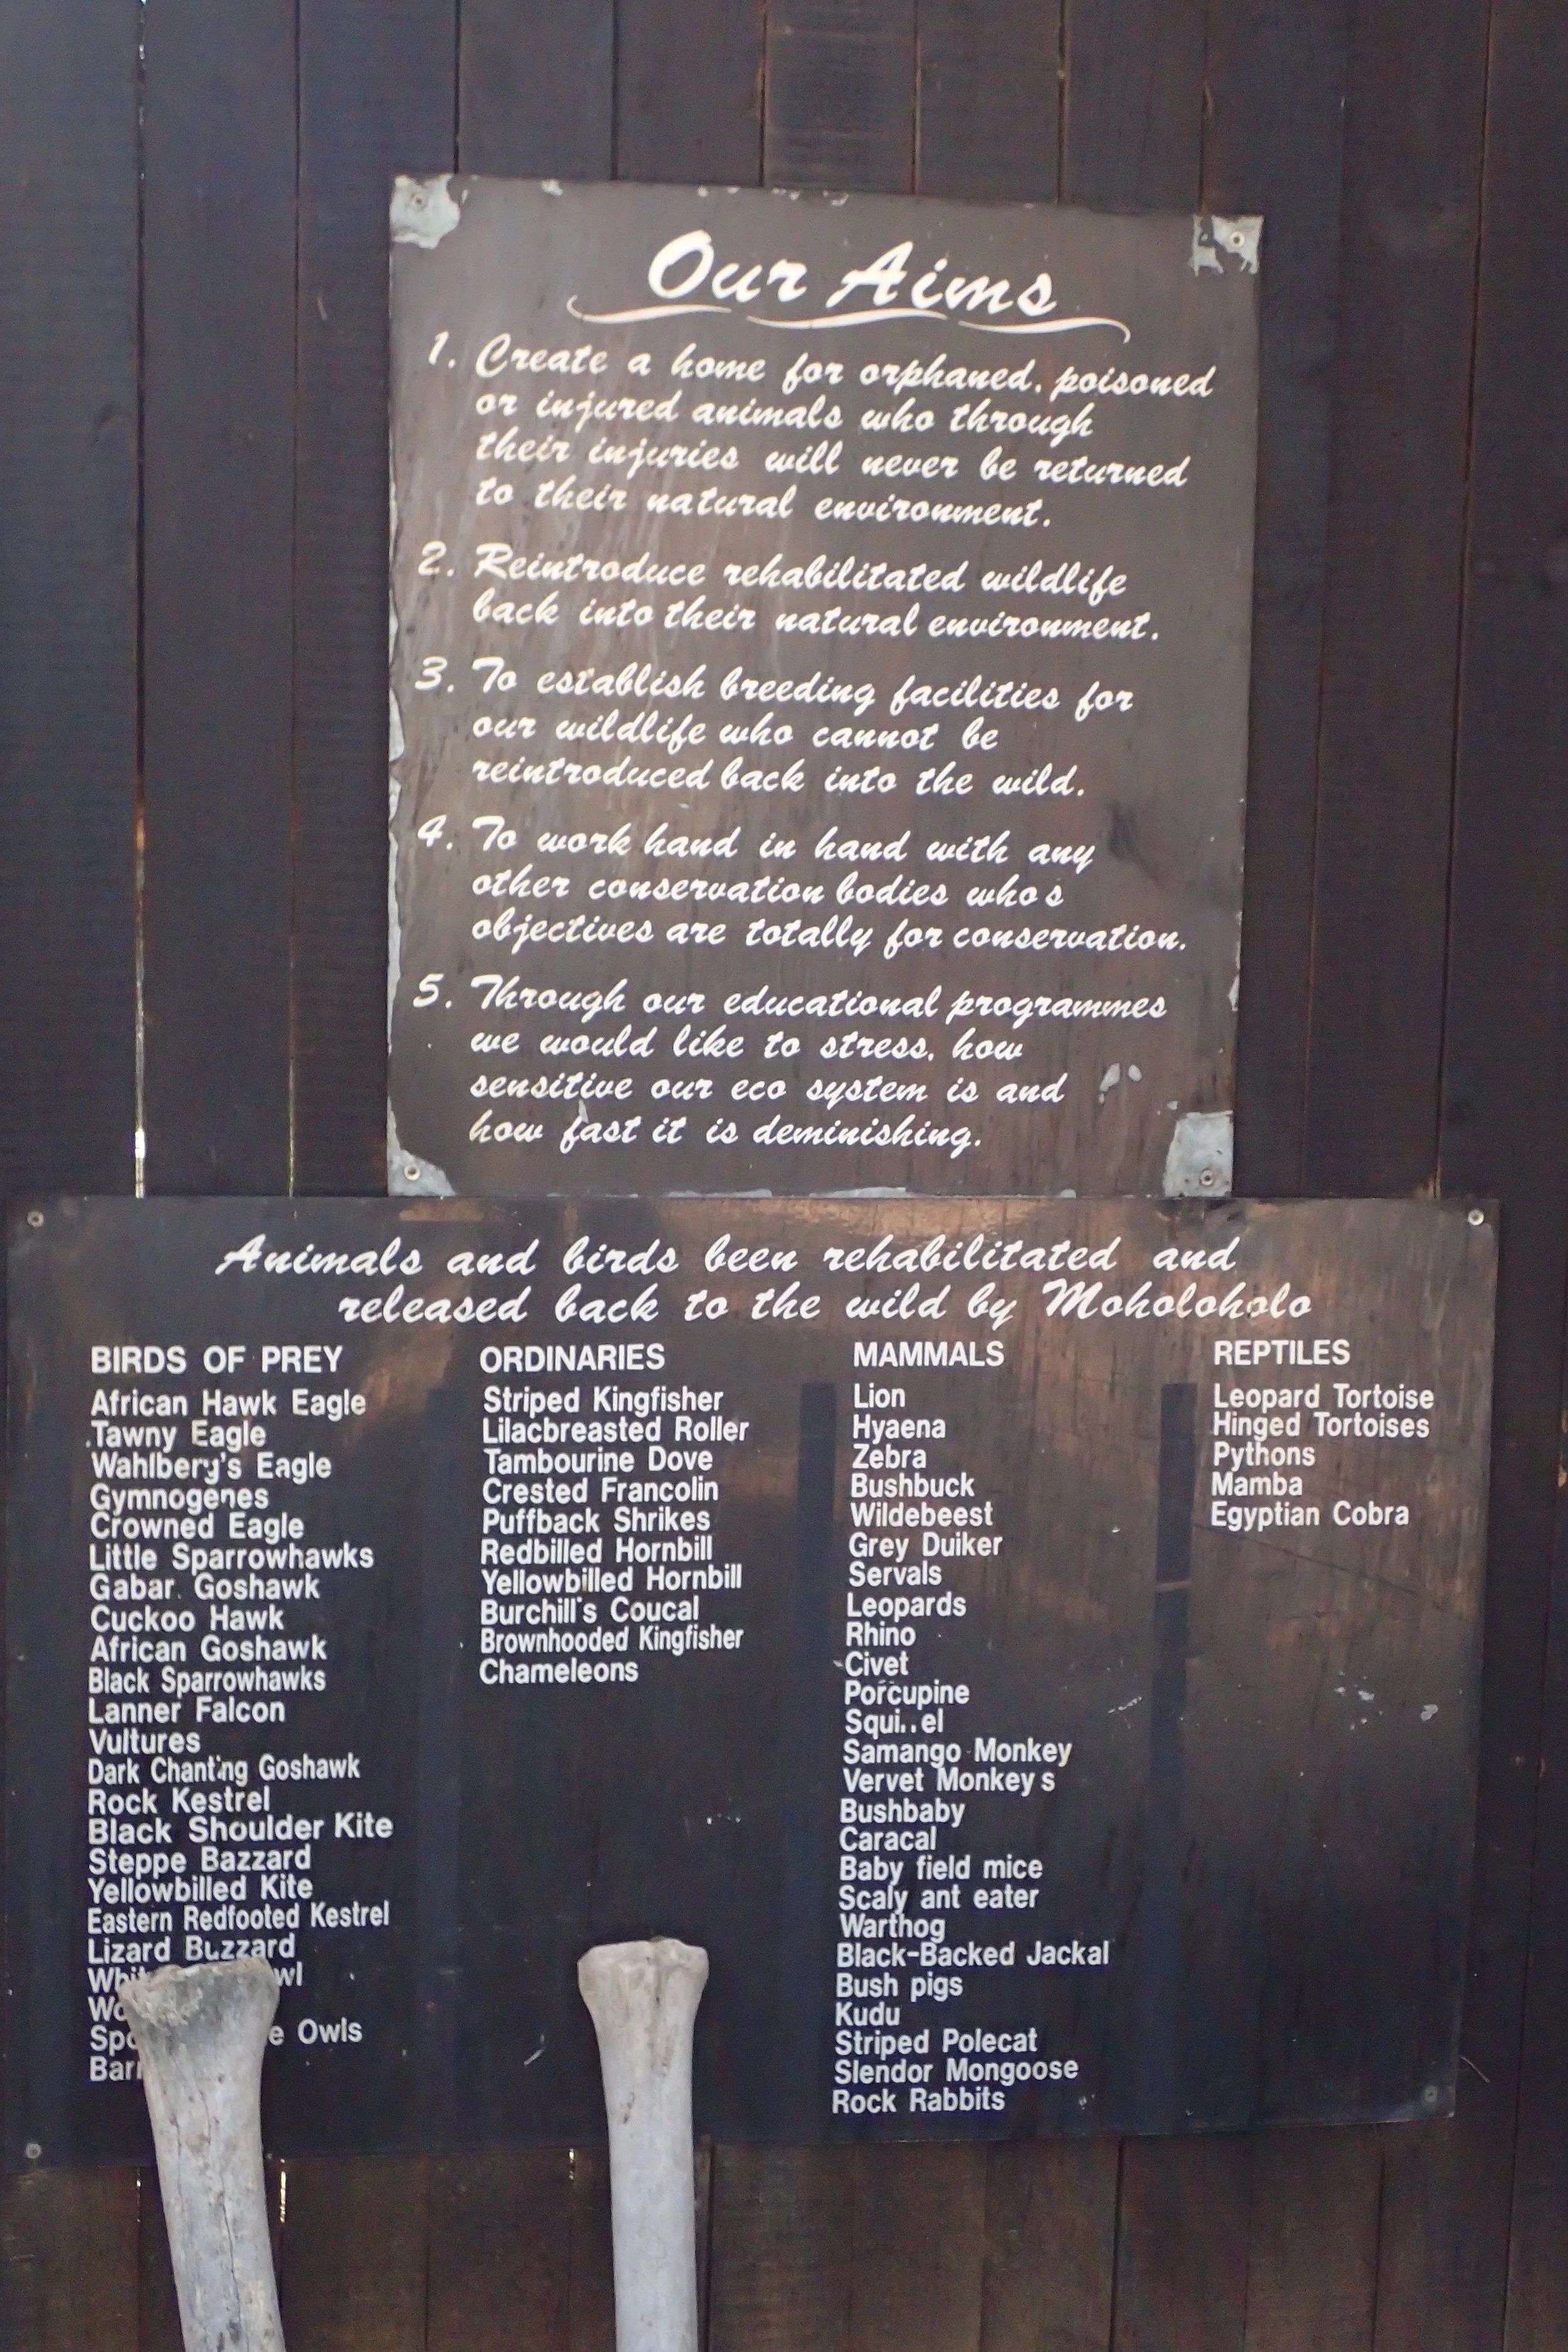 Our Aims
1. Create a home for orphaned, poisoned
or injured animals who through
their injuries will never be returned
to their natural environment.
2. Reintroduce rehabilitated wildlife
back into their natural environment.
3. To establish breeding facilities for
our wildlife who cannot be
reintroduced back into the wild.
4. To work hand in hand with any
other conservation bodies who's
objectives are totally for conservation.
5. Through our educational programmes
we would like to stress, how
sensitive our eco system is and
how fast it is deminishing.
Animals and birds been rehabilitated and
released back to the wild by Moholoholo
BIRDS OF PREY
African Hawk Eagle
Tawny Eagle
Wahlberg's Eagle
Gymnogenes
Crowned Eagle
Little Sparrowhawks
Gabar Goshawk
Cuckoo Hawk
African Goshawk
Black Sparrowhawks
Lanner Falcon
Vultures
Dark Chanting Goshawk
Rock Kestrel
Black Shoulder Kite
Steppe Bazzard
Yellowbilled Kite
Eastern Redfooted Kestrel
Lizard Buzzard
Owls
ORDINARIES
Striped Kingfisher
Lilacbreasted Roller
Tambourine Dove
Crested Francolin
Puffback Shrikes
Redbilled Hornbill
Yellowbilled Hornbill
Burchill's Coucal
Brownhooded Kingfisher
Chameleons
MAMMALS
Lion
Hyaena
Zebra
Bushbuck
Wildebeest
Grey Duiker
Servals
Leopards
Rhino
Civet
Porcupine
Squi..el
Samango Monkey
Vervet Monkeys
Bushbaby
Caracal
Baby field mice
Scaly ant eater
Warthog
Black-Backed Jackal
Bush pigs
Kudu
Striped Polecat
Slendor Mongoose
Rock Rabbits
REPTILES
Leopard Tortoise
Hinged Tortoises
Pythons
Mamba
Egyptian Cobra